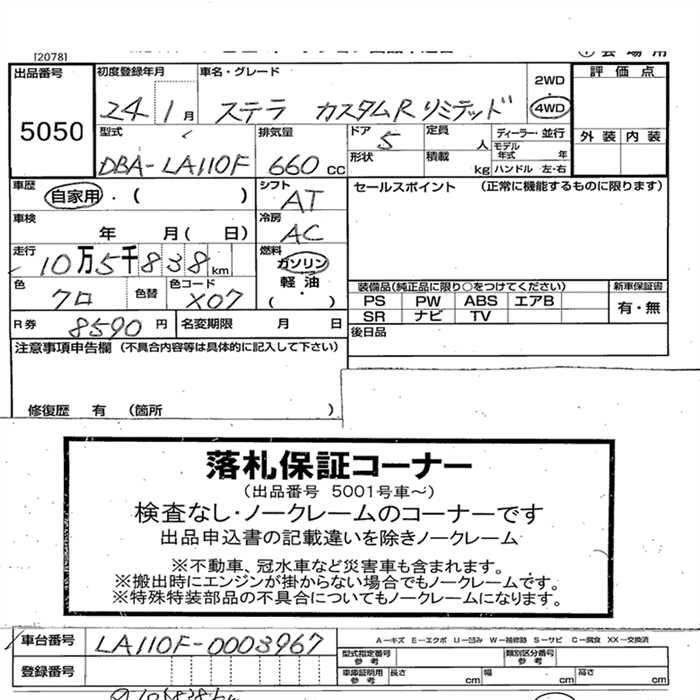 [2078]
出品番号 初度登録年月 車名・グレード 2WD 評価点
5050 24 1月 ステラ カスタムRリミテッド 4WD
型式 排気量 ドア 定員 ディーラー・並行 外装 内装
DBA-LA110F 660cc 5 人 モデル年式 年
形状 積載 kg ハンドル 左・右
車歴 自家用・( ) シフト AT セールスポイント (正常に機能するものに限ります)
車検 年 月( 日) 冷房 AC
走行 10万5千838km 燃料 ガソリン
軽油
( )
色 クロ 色替 色コード X07 装備品(純正品に限り○をつけてください) 新車保証書
PS PW ABS エアB 有・無
SR ナビ TV
R券 8590円 名変期限 月 日 後日品
注意事項申告欄 (不具合内容等は具体的に記入して下さい)
修復歴 有 (箇所 )
落札保証コーナー
(出品番号 5001号車~)
検査なし・ノークレームのコーナーです
出品申込書の記載違いを除きノークレーム
※不動車、冠水車など災害車も含まれます。
※搬出時にエンジンが掛からない場合でもノークレームです。
※特殊特装部品の不具合についてもノークレームになります。
車台番号 LA110F-0003967 A-キズ E-エクボ U-凹み W-補修跡 S-サビ C-腐食 XX-交換済
登録番号 型式指定番号 参考 類別区分番号 参考
車庫証明用 参考 長さ cm 幅 cm 高さ cm